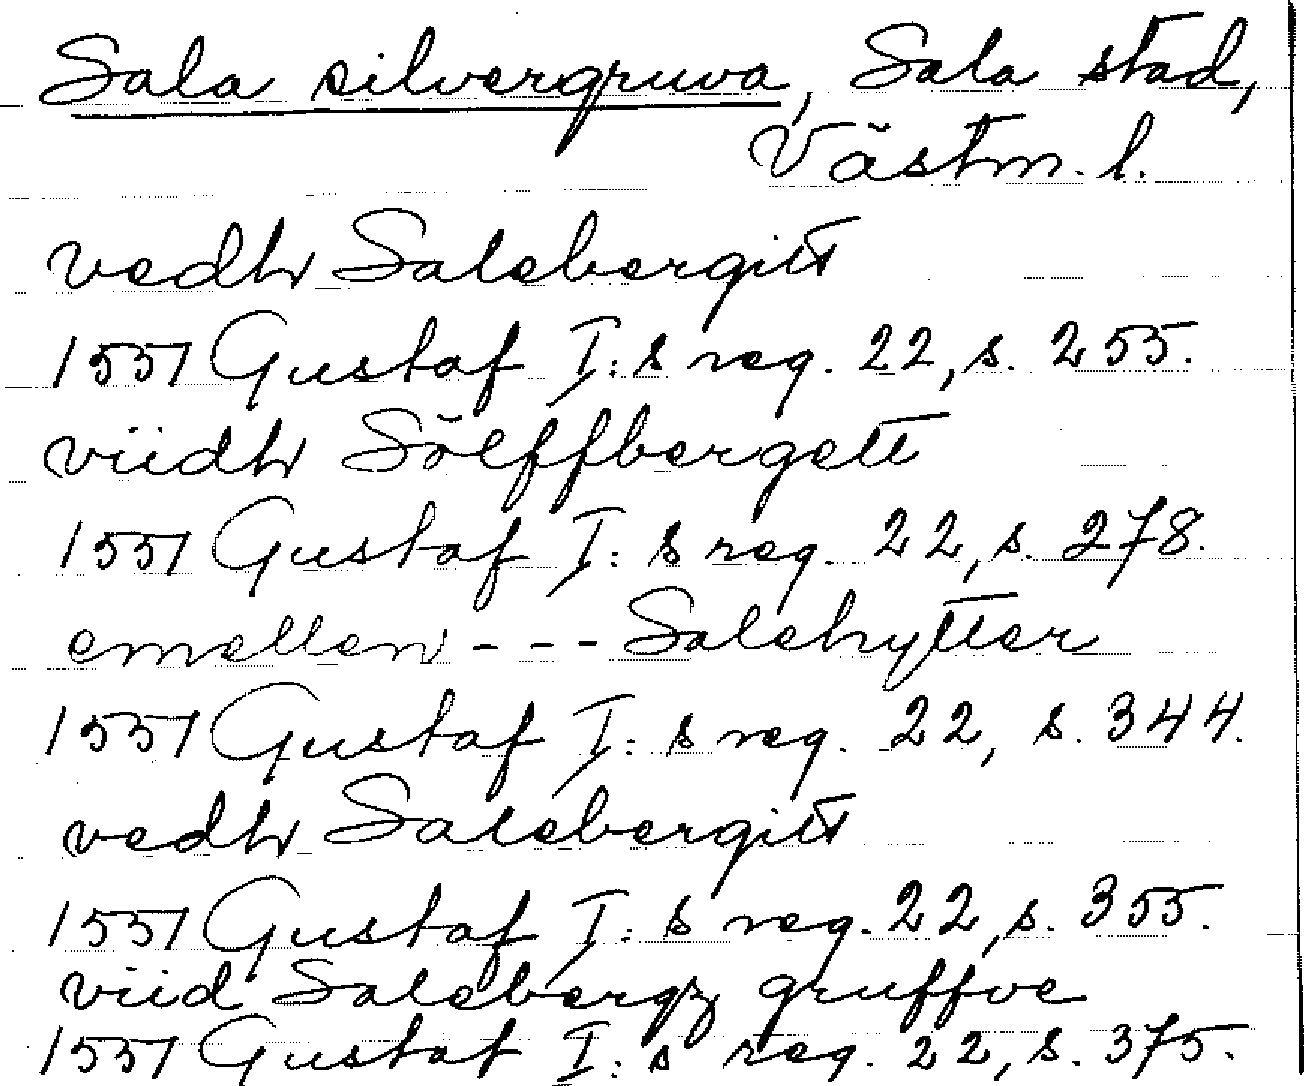 Sala silvergruva, Sala stad,
Västm. l.
vedh Salebergitt
1551 Gustaf I:s reg. 22, s. 255.
viidh Sölffbergett
1551 Gustaf I:s reg. 22, s. 278.
emellen - - - Salehytter
1551 Gustaf I:s reg. 22, s. 344.
vedh Salebergitt
1551 Gustaf I:s reg. 22, s. 355.
viid Salebergz gruffve
1551 Gustaf I:s reg. 22, s. 375.